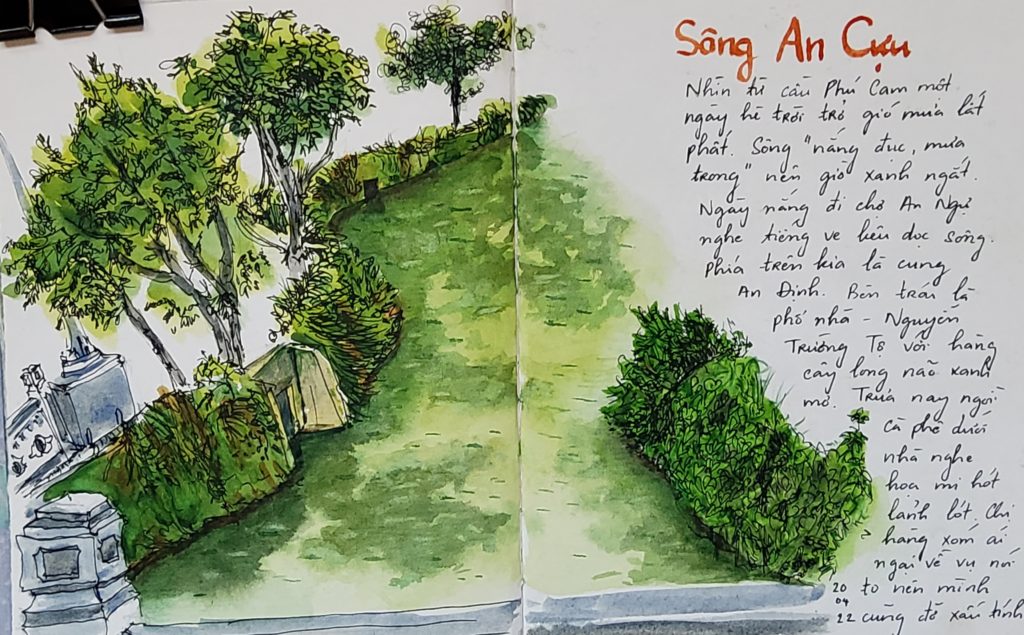 Sông An Cựu
Nhìn từ cầu Phú Cam một
ngày hè trời trở gió mưa lất
phất. Sông "nắng đục, mưa
trong" nên giờ xanh ngắt.
Ngày nắng đi chợ An Cựu
nghe tiếng ve liêu dọc sông.
Phía trên kia là cung
An Định. Bên trái là
phố nhà - Nguyễn
Trường Tộ với hàng
cây long não xanh
mơ. Trưa nay ngồi
cà phê dưới
nhà nghe
hoạ mi hót
lảnh lót. Chị
hàng xóm ái
ngại về vụ nói
20 to nên mình
04
22 cũng đỡ xấu tính